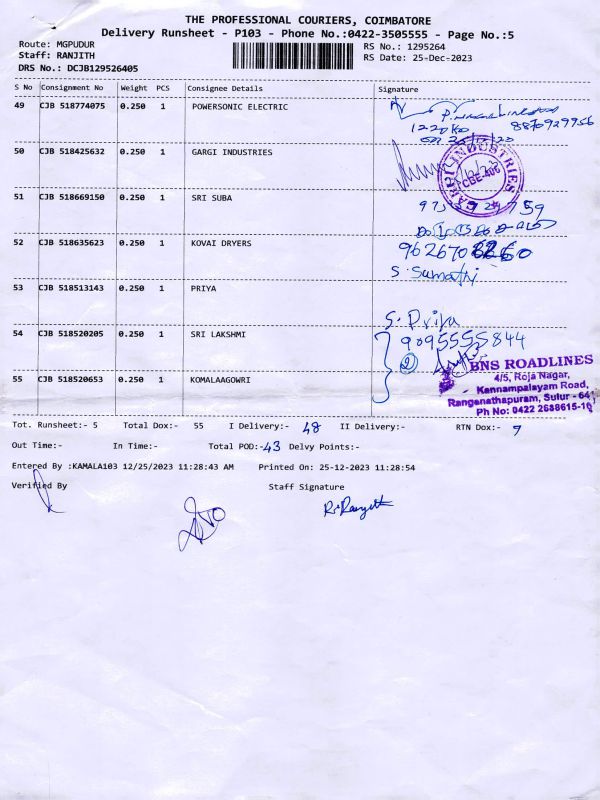 THE PROFESSIONAL COURIERS, COIMBATORE
Delivery Runsheet - P103 - Phone No.:0422-3505555 - Page No.:5
Route: MGPUDUR RS No.: 1295264
Staff: RANJITH RS Date: 25-Dec-2023
DRS No.: DCJB129526405
S No Consignment No Weight PCS Consignee Details Signature
49 CJB 518774075 0.250 1 POWERSONIC ELECTRIC
8870929956
50 CJB 518425632 0.250 1 GARGI INDUSTRIES
GARGI INDUSTRIES
51 CJB 518669150 0.250 1 SRI SUBA
52 CJB 518635623 0.250 1 KOVAI DRYERS
S. Sumathi
53 CJB 518513143 0.250 1 PRIYA
S. Priya
54 CJB 518520205 0.250 1 SRI LAKSHMI
9095555844
2
BNS ROADLINES
4/5, Roja Nagar,
55 CJB 518520653 0.250 1 KOMALAAGOWRI
Kannampalayam Road,
Ranganathapuram, Sulur - 641
Ph No: 0422 2688615-16
Tot. Runsheet:- 5 Total Dox:- 55 I Delivery:- 48 II Delivery:- RTN Dox:- 7
Out Time:- In Time:- Total POD:- 43 Delvy Points:-
Entered By :KAMALA103 12/25/2023 11:28:43 AM Printed On: 25-12-2023 11:28:54
Verified By Staff Signature
R. Ranjith